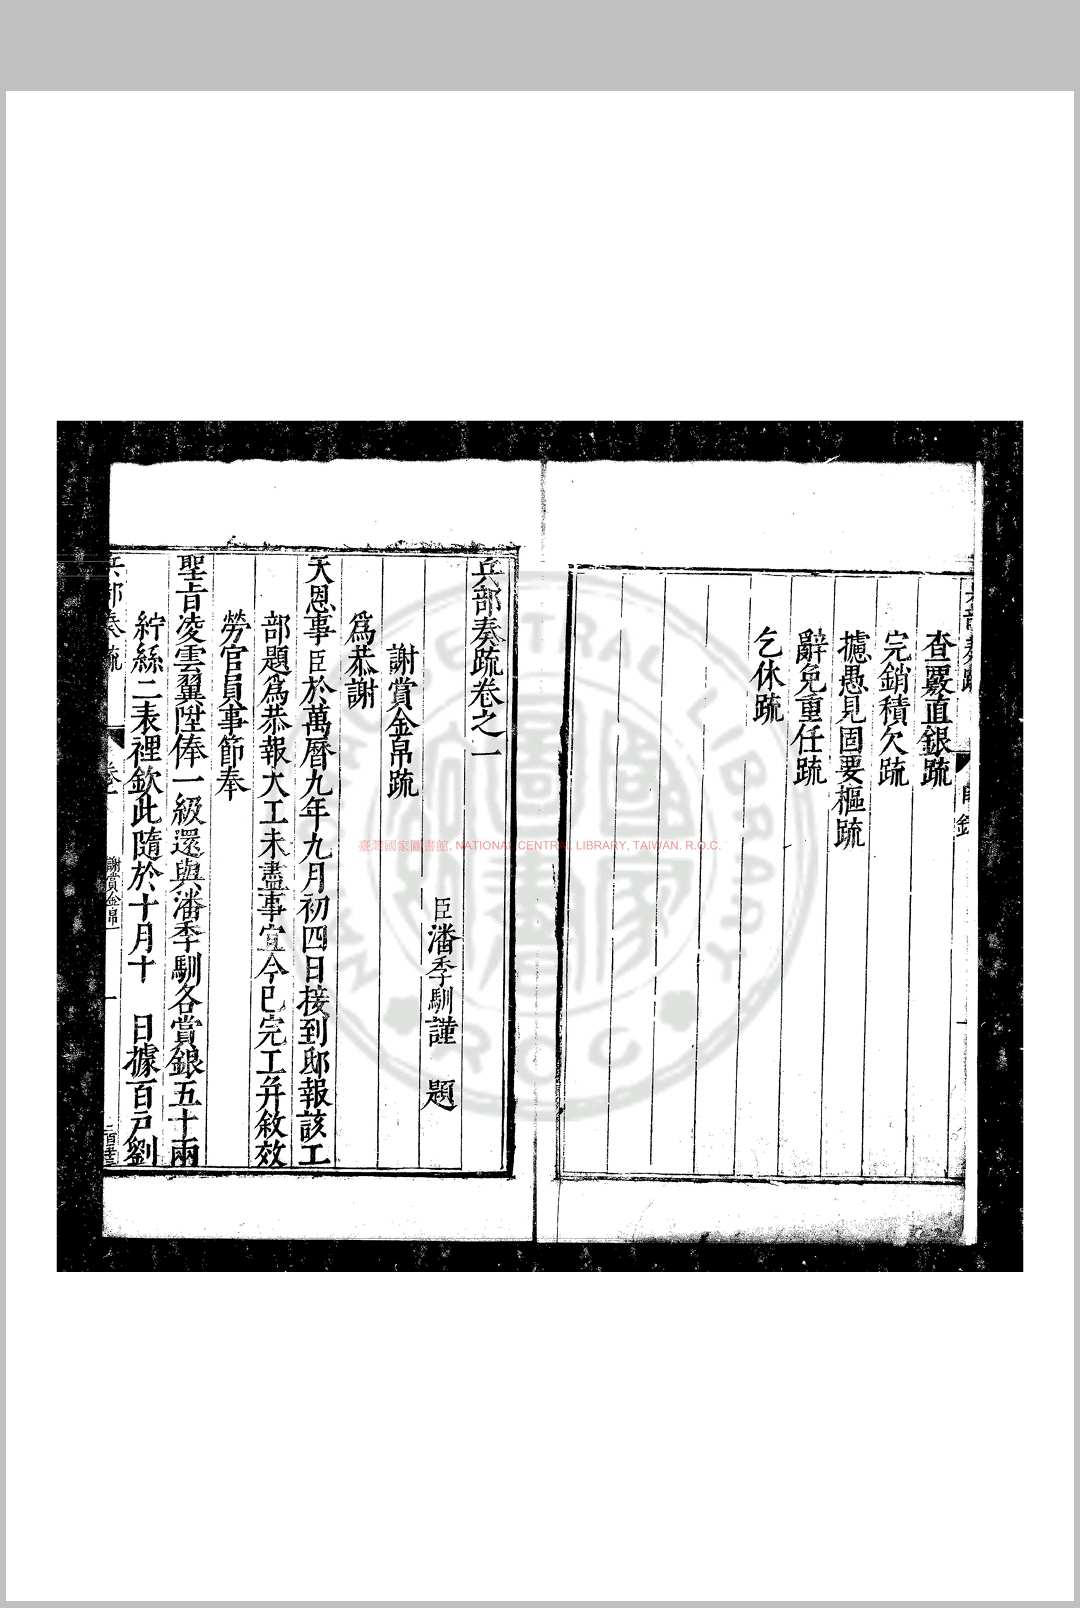 查覈直銀疏
完銷積欠疏
攄愚見固要樞疏
辭免重任疏
乞休疏
兵部奏疏卷之一
臣潘季馴謹 題
謝賞金帛疏
爲恭謝
天恩事臣於萬曆九年九月初四日接到邸報該工
部題爲恭報大工未盡事宜今已完工并敘效
勞官員事節奉
聖旨凌雲翼陞俸一級還與潘季馴各賞銀五十兩
紵絲二表裡欽此隨於十月十 日據百戶劉
兵部奏疏
謝賞金帛
一
臺灣國家圖書館, NATIONAL CENTRAL LIBRARY, TAIWAN, R.O.C.